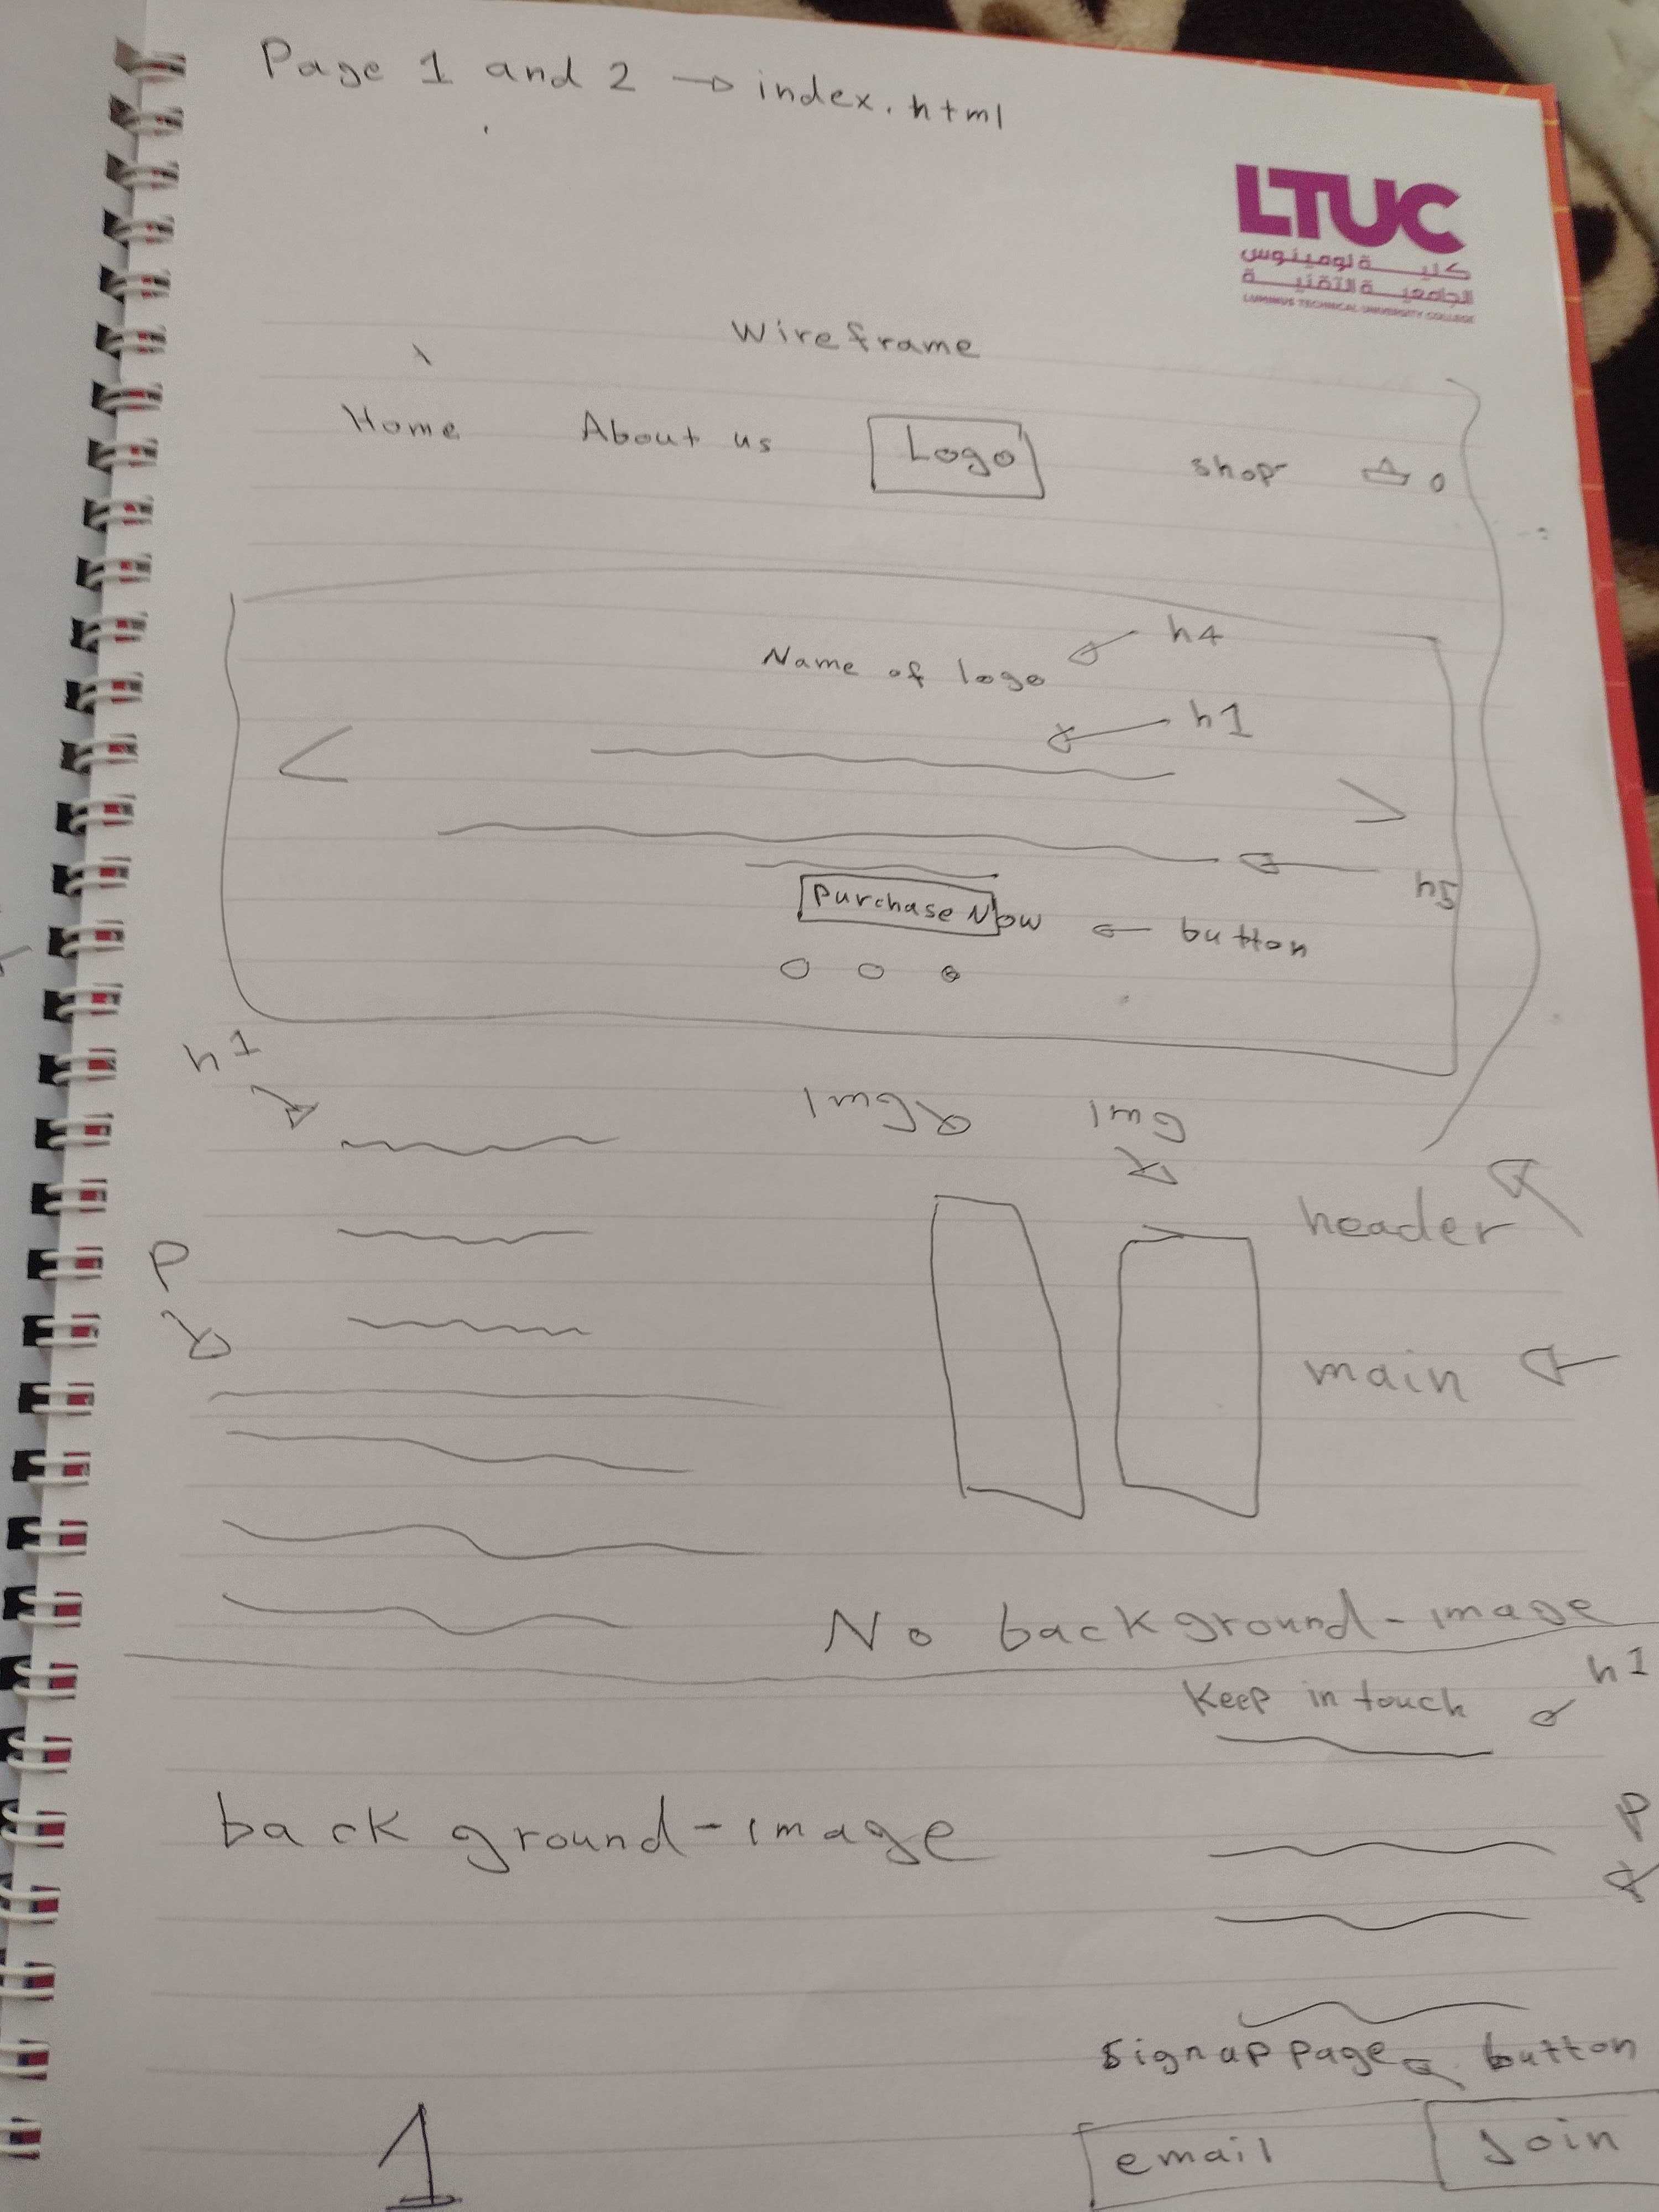 Page 1 and 2 → index.html
LTUC
كلية لومينوس
الجامعية التقنية
LUMINUS TECHNICAL UNIVERSITY COLLEGE
Wireframe
Home About us Logo shop 0
Name of logo h4
h1
< >
h5
Purchase Now button
h1
img img
header
P
main
No background-image
h1
Keep in touch
background-image
P
signup page button
email Join
1